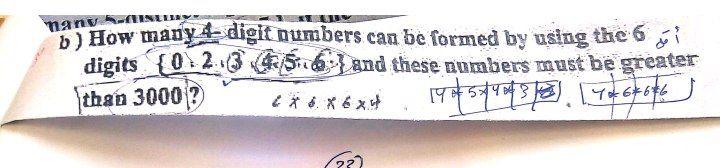 b) How many 4- digit numbers can be formed by using the 6
digits {0, 2, 3, 4, 5, 6} and these numbers must be greater
than 3000 ?
6 x 6 x 6 x 4
4 6 6 6
(22)